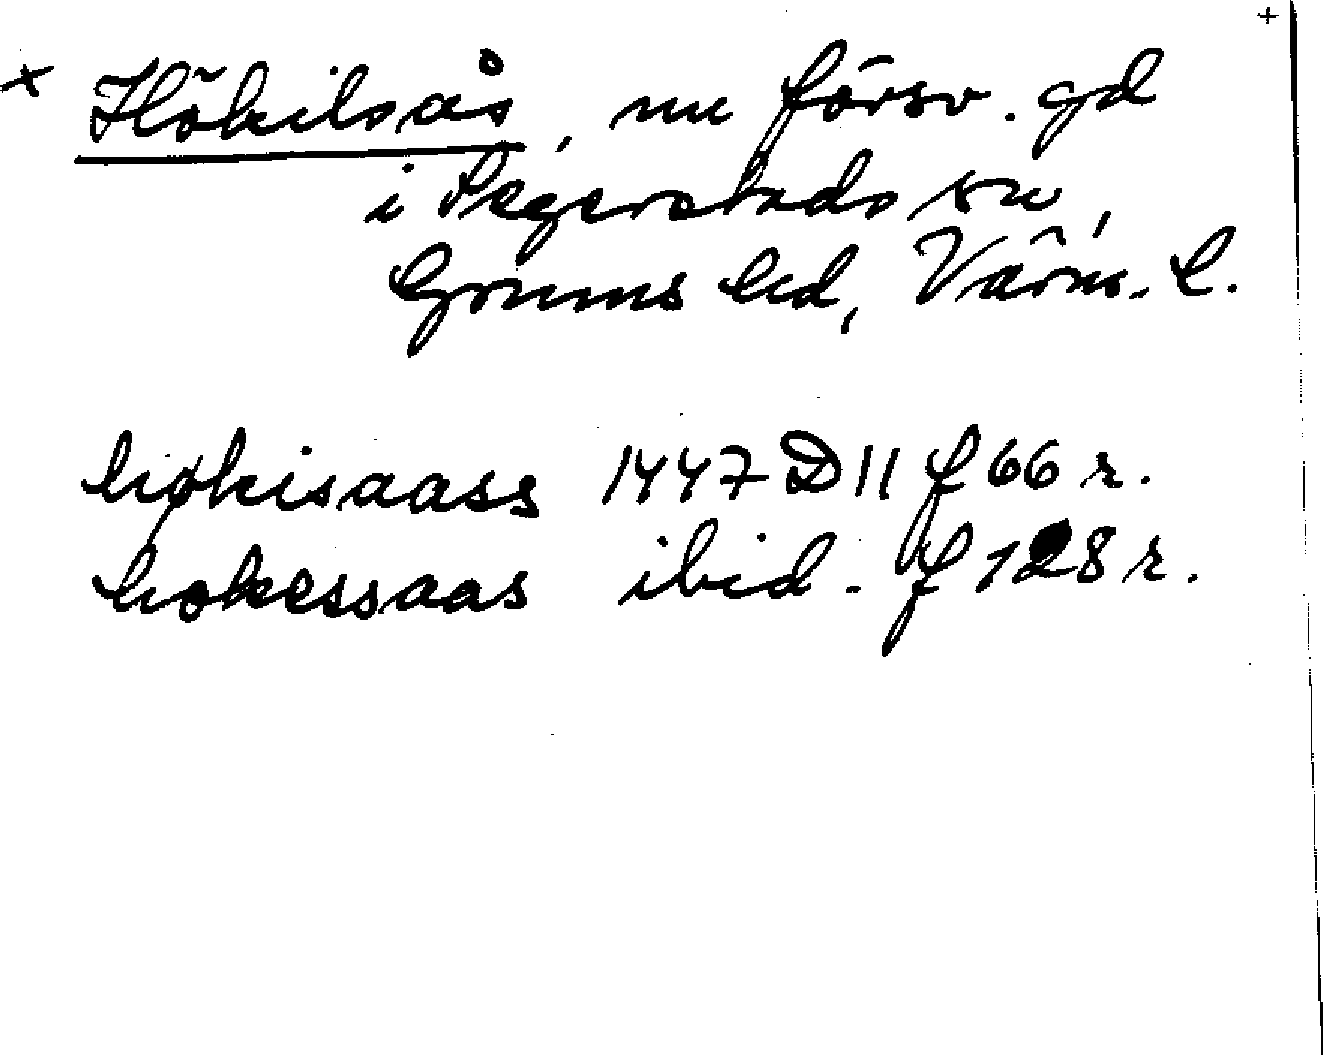 +
× Hökilsås, nu försv. gd
i Segerstads sn,
Grums hd, Värml. l.
høkisaass 1447 D 11 f 66 r.
hokessaas ibid. f 128 r.